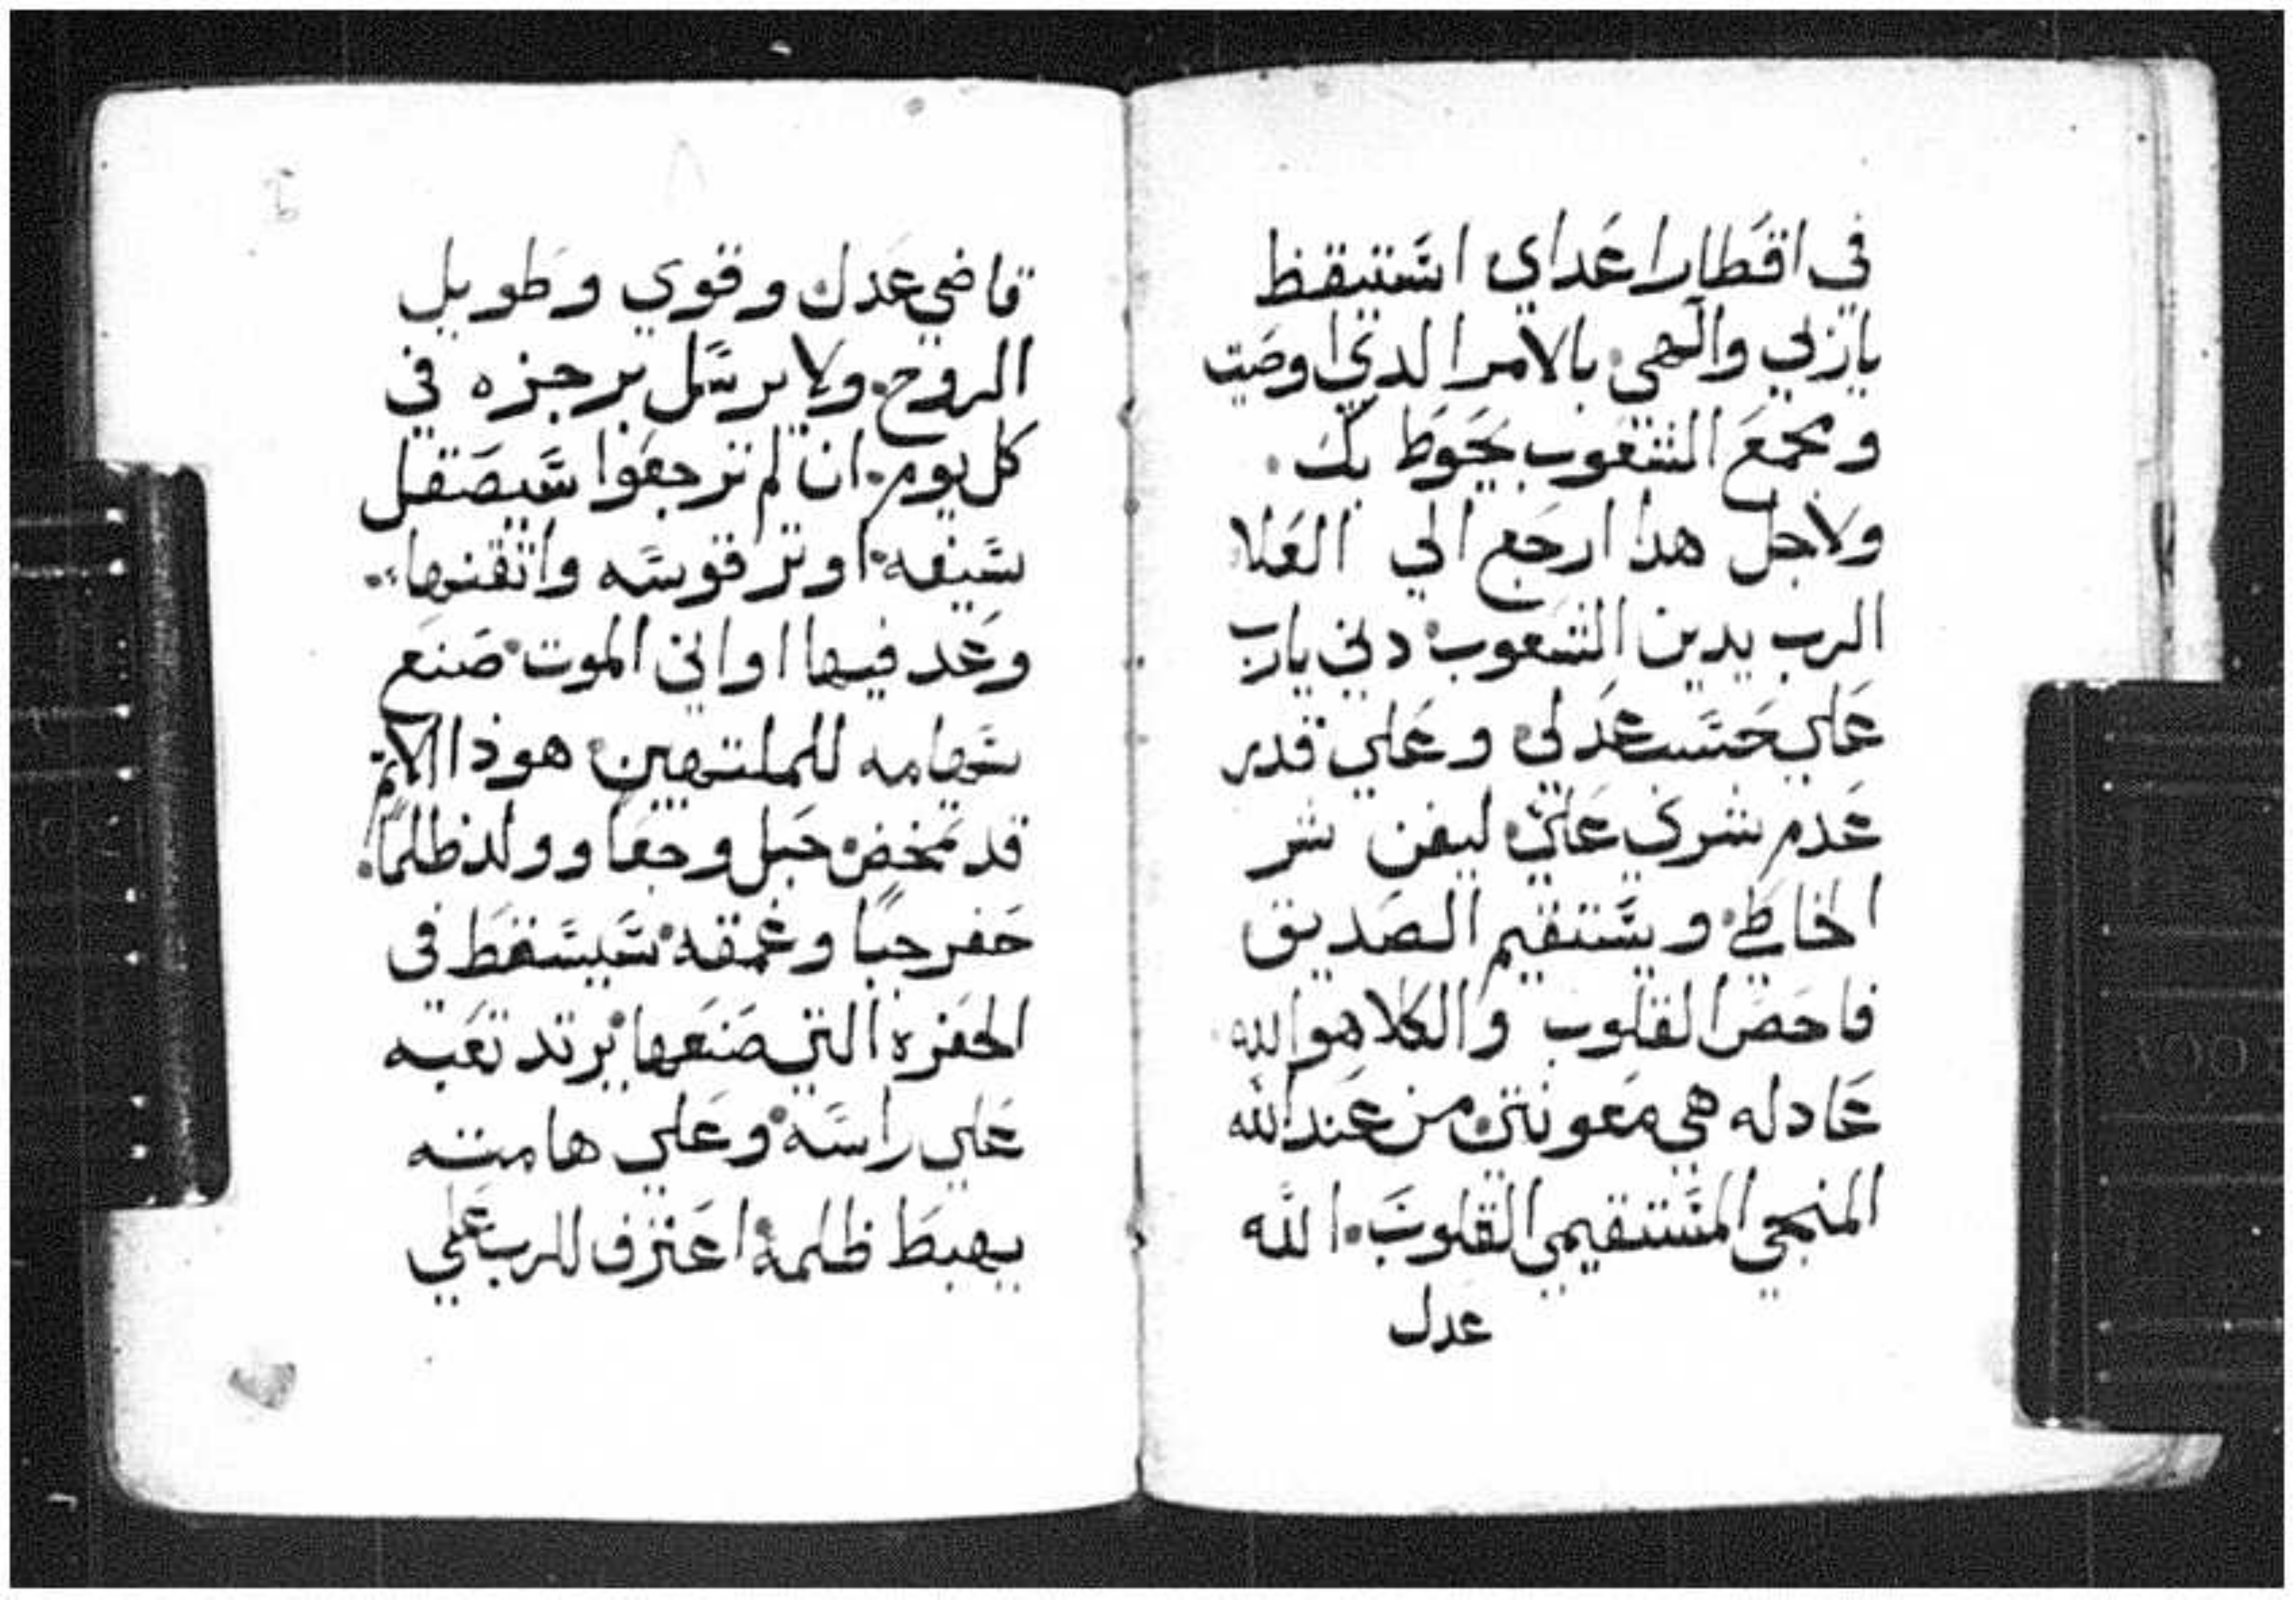 في اقطار اعداي استيقظ
يا ربي والهي بالامر الدي اوصيت
ومجمع الشعوب يحوط بك
ولاجل هدا ارجع الي العلا
الرب يدين الشعوب دني يا رب
علي حسب عدلي وعلي قدر
عدم شري علي ليفن شر
الخاطي ويستقيم الصديق
فاحص القلوب والكلا هو الله
عادله هي معونتي من عند الله
المنجي المستقيمي القلوب الله
عدل
قاضي عدل وقوي وطويل
الروح ولا يرسل برجزه في
كل يوم ان لم ترجعوا سيصقل
سيفه اوتر قوسه واتقنها
وعد فيها اواني الموت صنع
سهامه للملتهين هوذا الاثم
قد تمخض حبل وجعا وولد ظلما
حفر جبا وعمقه سيسقط في
الحفره التي صنعها يرتد تعبه
علي راسه وعلي هامته
يهبط ظلمه اعترف للرب علي